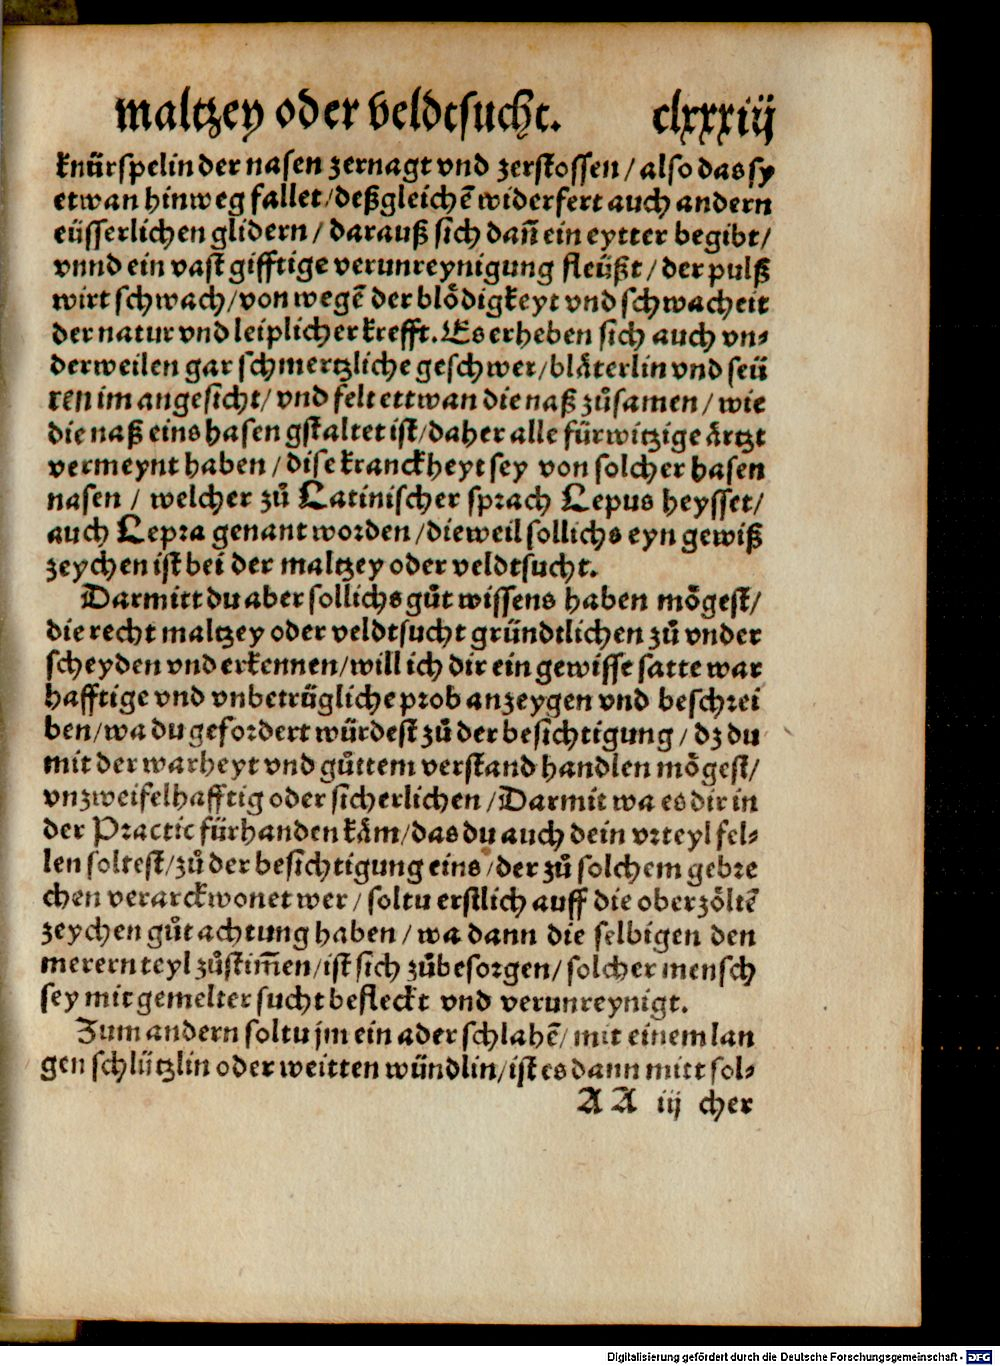 maltzey oder veldtsucht. clxxxiij
knürspelin der nasen zernagt vnd zerstossen / also das sy
etwan hinweg fallet / deßgleichē widerfert auch andern
eüsserlichen glidern / darauß sich dañ ein eytter begibt /
vnnd ein vast gifftige verunreynigung fleüßt / der pulß
wirt schwach / von wegē der blödigkeyt vnd schwacheit
der natur vnd leiplicher krefft. Es erheben sich auch vn⸗
derweilen gar schmertzliche geschwer / bläterlin vnd seü
ren im angesicht / vnd felt ettwan die naß zůsamen / wie
die naß eins hasen gstaltet ist / daher alle fürwitzige ärtzt
vermeynt haben / dise kranckheyt sey von solcher hasen
nasen / welcher zů Latinischer sprach Lepus heysset /
auch Lepra genant worden / dieweil sollichs eyn gewiß
zeychen ist bei der maltzey oder veldtsucht.
Darmitt du aber sollichs gůt wissens haben mögest /
die recht maltzey oder veldtsucht gründtlichen zů vnder
scheyden vnd erkennen / will ich dir ein gewisse satte war
hafftige vnd vnbetrügliche prob anzeygen vnd beschrei
ben / wa du gefordert würdest zů der besichtigung / dz du
mit der warheyt vnd gůttem verstand handlen mögest /
vnzweifelhafftig oder sicherlichen / Darmit wa es dir in
der Practic fürhanden käm / das du auch dein vrteyl fel⸗
len soltest / zů der besichtigung eins / der zů solchem gebre
chen verarckwonet wer / soltu erstlich auff die oberzöltē
zeychen gůt achtung haben / wa dann die selbigen den
merern teyl zůstim̄en / ist sich zůbesorgen / solcher mensch
sey mit gemelter sucht befleckt vnd verunreynigt.
Zum andern soltu jm ein ader schlahē / mit einem lan
gen schlützlin oder weitten wündlin / ist es dann mitt sol⸗
A A iij cher
Digitalisierung gefördert durch die Deutsche Forschungsgemeinschaft - DFG